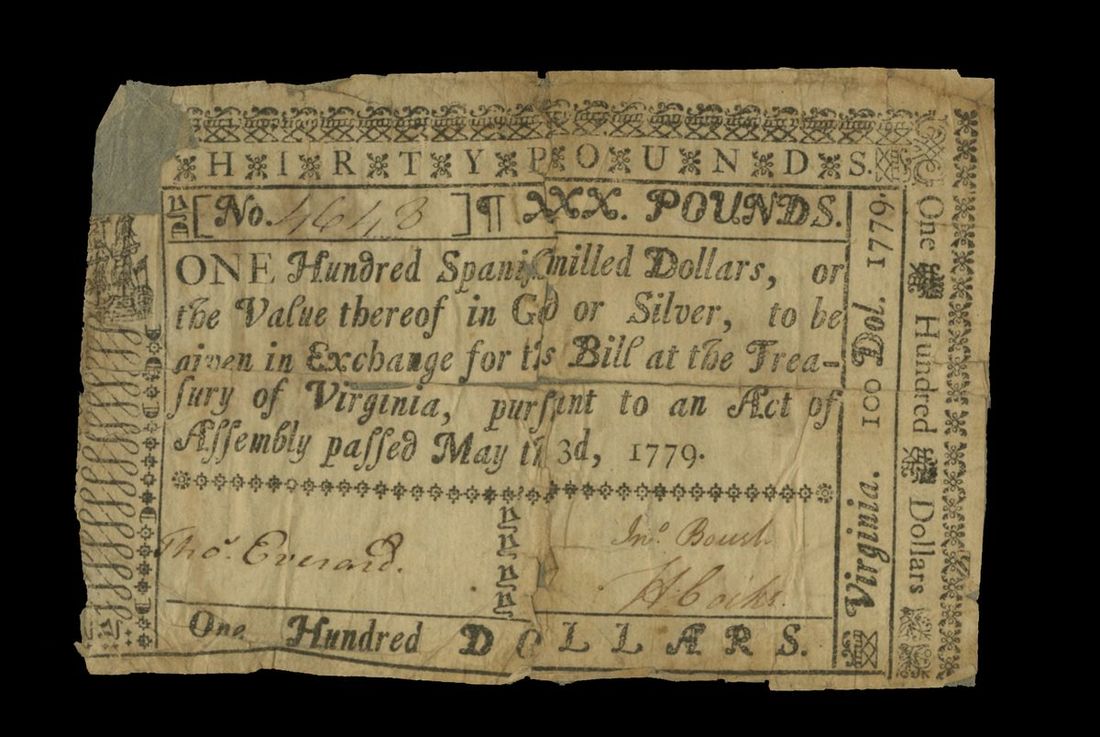 HIRTY POUNDS.
[No. 4643 ]¶ XXX. POUNDS.
ONE Hundred Spaniſ milled Dollars, or
the Value thereof in Go or Silver, to be
given in Exchange for ths Bill at the Trea-
ſury of Virginia, purſant to an Act of
Aſſembly paſſed May th 3d, 1779.
Thos. Everard.
Jno. Boush
H. Cocke.
One Hundred DOLLARS.
Virginia. 100 Dol. 1779
One Hundred Dollars